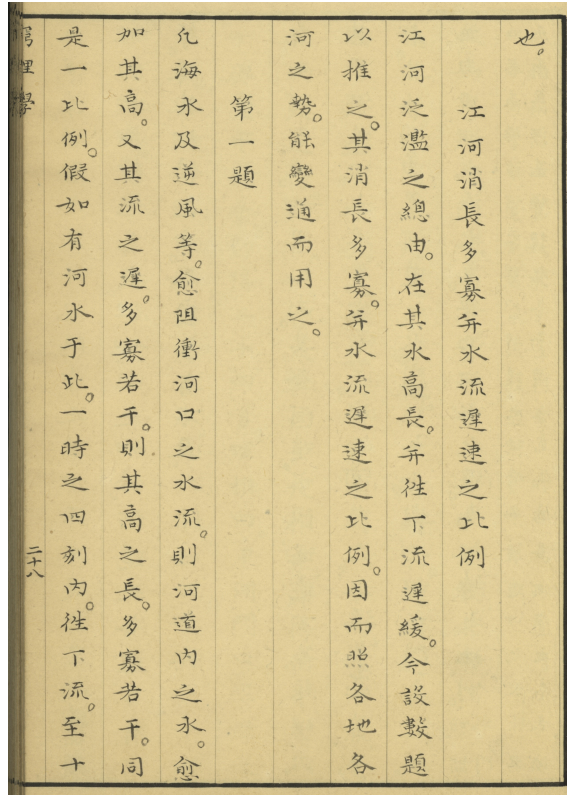 也。
江河消長多寡并水流遲速之比例
江河泛濫之總由。在其水高長。并徃下流遲緩。今設數題
以推之。其消長多寡。并水流遲速之比例。因而照各地各
河之勢。能變通而用之。
第一題
凡海水及逆風等。愈阻衝河口之水流。則河道内之水。愈
加其高。又其流之遲。多寡若干。則其高之長。多寡若干。同
是一比例。假如有河水于此。一時之四刻内。徃下流。至十
窮理學
二十八